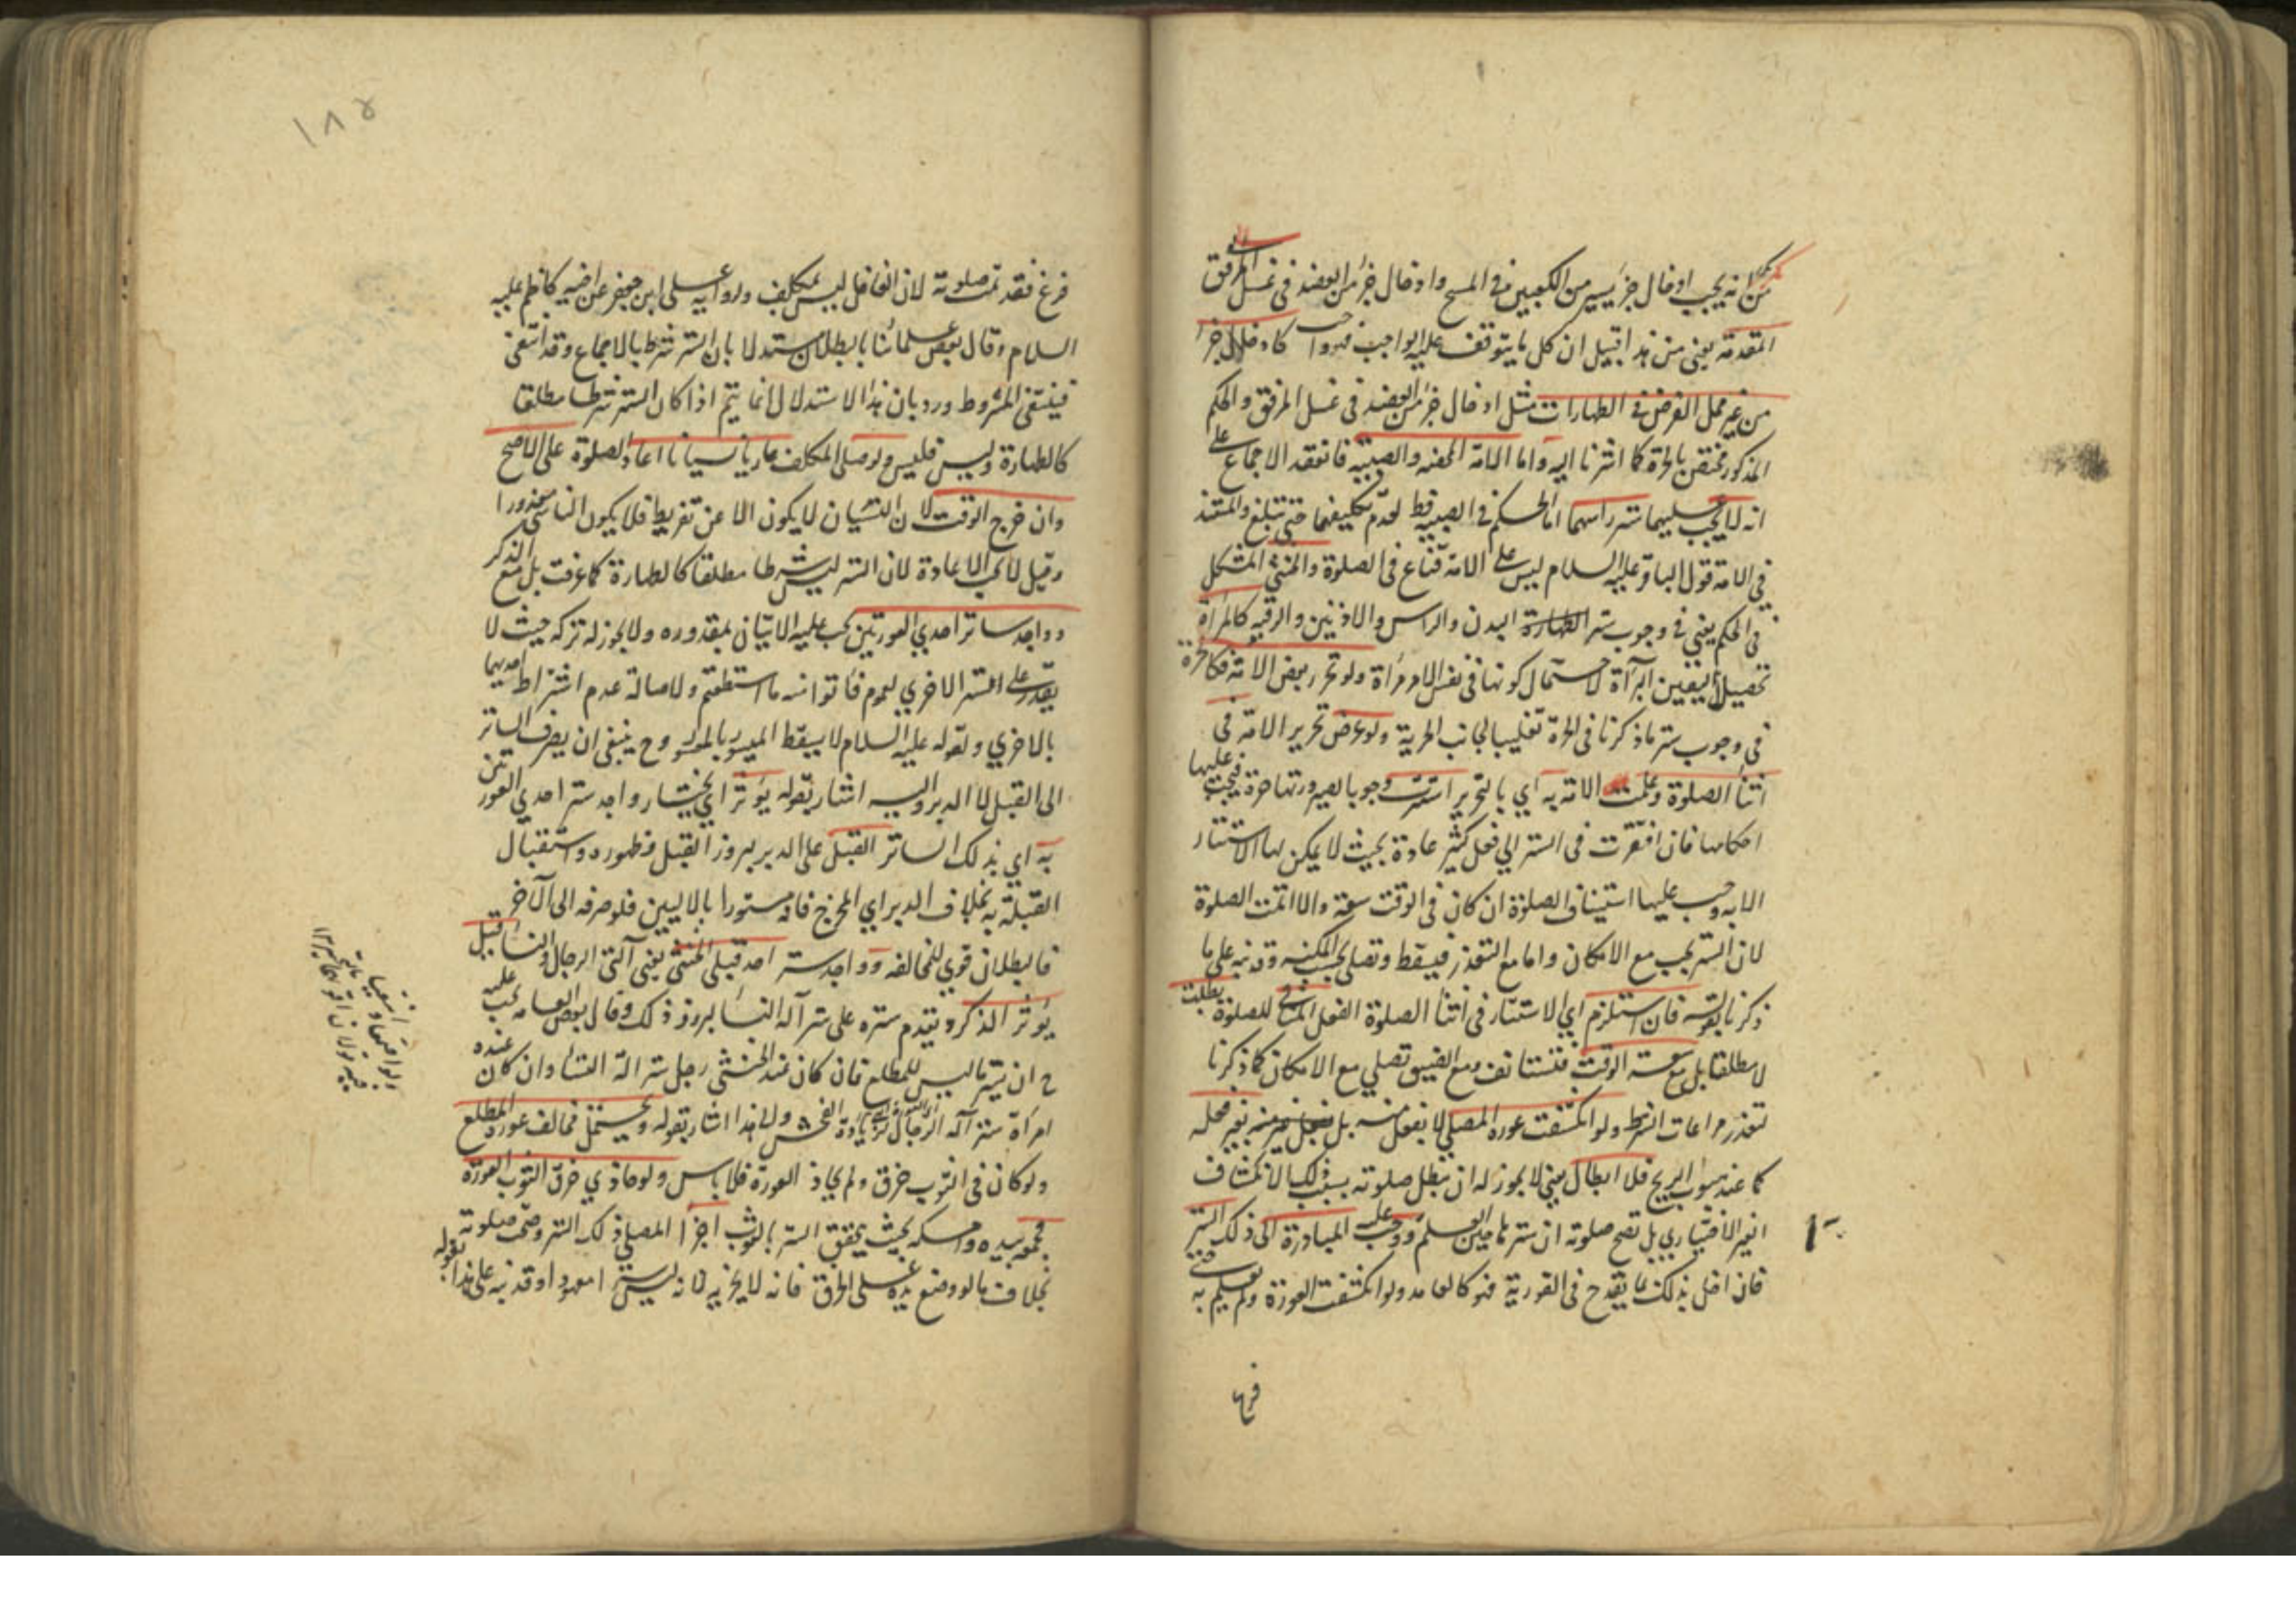 كما انه يجب ادخال جزء يسير من الكعبين في المسح وادخال جزء من العضد في غسل المرفق
المقدمة يعني من هذا قبيل ان كل ما يتوقف عليه الواجب فهو واجب كادخال جزء
من غير محل الفرض في الطهارات مثل ادخال جزء من العضد في غسل المرفق والحكم
المذكور مختص بالحرة كما اشرنا اليه واما الامة المحضة والصبية فانعقد الاجماع على
انه لا يجب عليهما ستر راسهما اما الحكم في الصبية فقط لعدم تكليفها حتى تبلغ والمستند
في الامة قول الباقر عليه السلام ليس على الامة قناع في الصلوة والخنثى المشكل
في الحكم يعني في وجوب ستر البدن والراس والاذنين والرقبة كالمرأة
تحصيلا ليقين البرآءة لاحتمال كونها في نفس الامر مرأة ولو تحرر بعض الامة فكالحرة
في وجوب ستر ما ذكرنا في الحرة تغليبا لجانب الحرية ولو عرض تحرير الامة في
اثنآء الصلوة وعلمت الامة به اي بالتحرير استترت وجوبا لصيرورتها حرة فيجب عليها
احكامها فان افتقرت في الستر الى فعل كثير عادة بحيث لا يمكن لها الاستتار
الا به وجب عليها استيناف الصلوة ان كان في الوقت سعة والا اتمت الصلوة
لان الستر يجب مع الامكان واما مع التعذر فيسقط وتصلى بحسب المكنه وقد نبه على ما
ذكرنا بقوله فان استلزم اي الاستتار في اثنآء الصلوة الفعل المنافي للصلوة بطلت
لا مطلقا بل مع سعة الوقت فتستانف ومع الضيق تصلي مع الامكان كما ذكرنا
لتعذر مراعات الشرط ولو انكشفت عورة المصلي لا بفعل منه بل بغير محله
كما عند هبوب الريح فلا ابطال يعني لا يجوز له ان يبطل صلوته بسبب ذلك الانكشاف
الغير الاختياري بل تصح صلوته ان سترها حين العلم ووجب عليه المبادرة الى ذلك الستر
فان اخل بذلك بما يقدح في الفورية فهو كالعامد ولو انكشفت العورة ولم يعلم به حتى
فرغ
١٨٥
فرغ فقد تمت صلوته لان الغافل ليس بمكلف ولرواية على ابن جعفر عن اخيه كاظم عليه
السلام وقال بعض علمائنا بابطلان مستدلا بان الستر شرط بالاجماع وقد انتفى
فينتفي المشروط ورد بان هذا الاستدلال انما يتم اذا كان الستر شرطا مطلقا
كالطهارة وليس فليس ولو صلى المكلف عاريا نسيانا اعاد الصلوة على الاصح
وان خرج الوقت لان النسيان لا يكون الا عن تفريط فلا يكون الناسي معذورا
وقيل لا يجب الاعادة لان الستر ليس شرطا مطلقا كالطهارة كما عرفت بل مع الذكر
وواجد ساتر احدي العورتين يجب عليه الاتيان بمقدوره ولا يجوز له تركه حيث لا
يقدر على الستر الاخري لعموم فأتوا منه ما استطعتم ولاصالة عدم اشتراط احديهما
بالاخري ولقوله عليه السلام لا يسقط الميسور بالمعسور وح ينبغي ان يصرف الساتر
الى القبل لا الدبر واليه اشار بقوله يؤثر اي يختار واجد ستر احدي العورتين
به اي بذلك الساتر القبل على الدبر لبروز القبل وظهوره واستقبال
القبلة به بخلاف الدبر اي المخرج فانه مستورا بالاليين فلو صرفه الى الآخر
فالبطلان قوي للمخالفه وواجد ستر احد قبلي الخنثى يعني آلتي الرجال والنسآء قيل
يؤثر الذكر ويتقدم ستره على ستر آلة النسآء لبروز ذلك وقال بعض العامه يجب عليه
ح ان يستر ما ليس للمطلع فان كان عند الخنثى رجل ستر الة النسآء وان كان عنده
امرأة ستر آلة الرجال لزيادة الفحش ولهذا اشار بقوله ويحتمل مخالف عورة المطلع
ولو كان في الثوب خرق ولم يحاذ العورة فلا باس ولو حاذي خرق الثوب العورة
فجمعه بيده وامسكه بحيث يتحقق الستر بالثوب اجزأ المصلي ذلك الستر وصحت صلوته
بخلاف ما لو وضع يده على الخرق فانه لا يجزيه لانه ليس ستر امعهودا وقد نبه على هذا بقوله